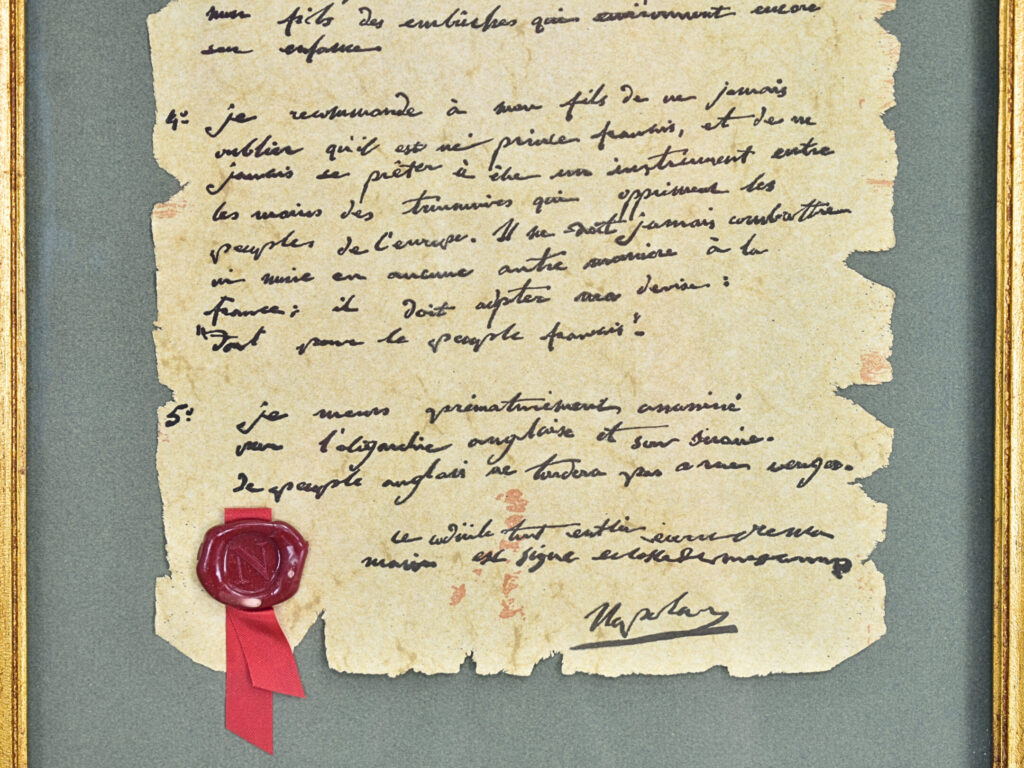 mon fils des embûches qui environnent encore
son enfance
4º je recommande à mon fils de ne jamais
oublier qu'il est né prince français, et de ne
jamais se prêter à être un instrument entre
les mains des triumvirs qui oppriment les
peuples de l'europe. Il ne doit jamais combattre
ni nuire en aucune autre manière à la
france; il doit adopter ma devise:
"Tout pour le peuple français".
5º je meurs prématurément assassiné
par l'oligarchie anglaise et son sicaire.
le peuple anglais ne tardera pas à me venger.
ce codicile tout entier écrit de ma
main est signé et scellé de mes armes
Napoleon
N